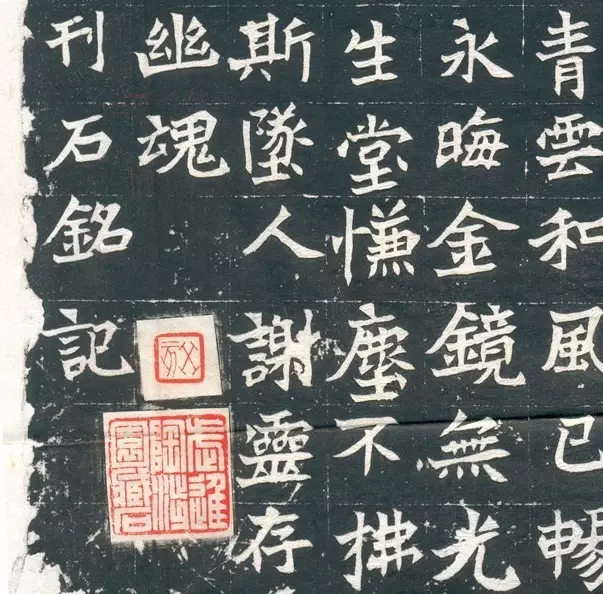 青雲和風已暢
永晦金鏡無光
生堂慊塵不拂
斯墜人謝靈存
幽魂
刊石銘記
武進
陶涉
園藏石